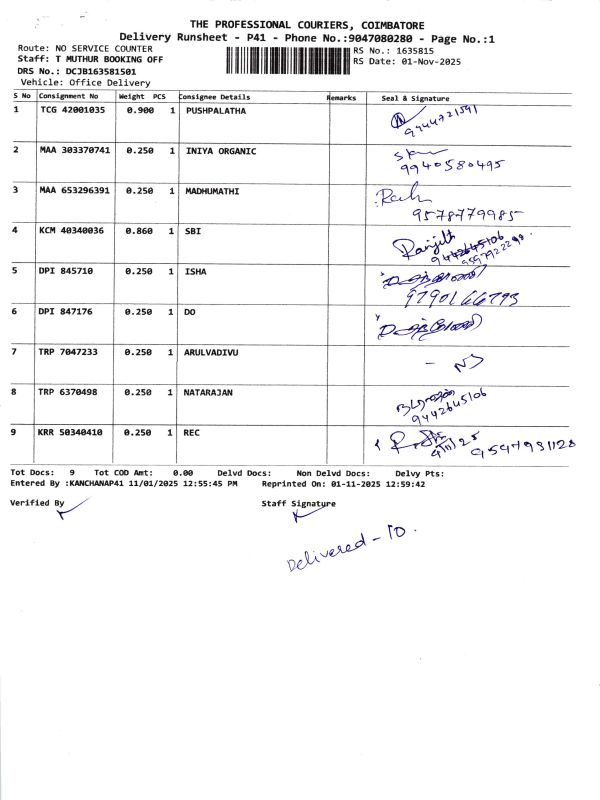 THE PROFESSIONAL COURIERS, COIMBATORE
Delivery Runsheet - P41 - Phone No.:9047080280 - Page No.:1
Route: NO SERVICE COUNTER
RS No.: 1635815
Staff: T MUTHUR BOOKING OFF
RS Date: 01-Nov-2025
DRS No.: DCJB163581501
Vehicle: Office Delivery
S No Consignment No Weight PCS Consignee Details Remarks Seal & Signature
1 TCG 42001035 0.900 1 PUSHPALATHA 9444721591
2 MAA 303370741 0.250 1 INIYA ORGANIC
9940580495
3 MAA 653296391 0.250 1 MADHUMATHI
9578779985
4 KCM 40340036 0.860 1 SBI Ranjith
9442645106
5 DPI 845710 0.250 1 ISHA
9790166793
6 DPI 847176 0.250 1 DO
7 TRP 7047233 0.250 1 ARULVADIVU - NS
8 TRP 6370498 0.250 1 NATARAJAN
9442645106
9 KRR 50340410 0.250 1 REC
Tot Docs: 9 Tot COD Amt: 0.00 Delvd Docs: Non Delvd Docs: Delvy Pts:
Entered By :KANCHANAP41 11/01/2025 12:55:45 PM Reprinted On: 01-11-2025 12:59:42
Verified By Staff Signature
Delivered - 10.